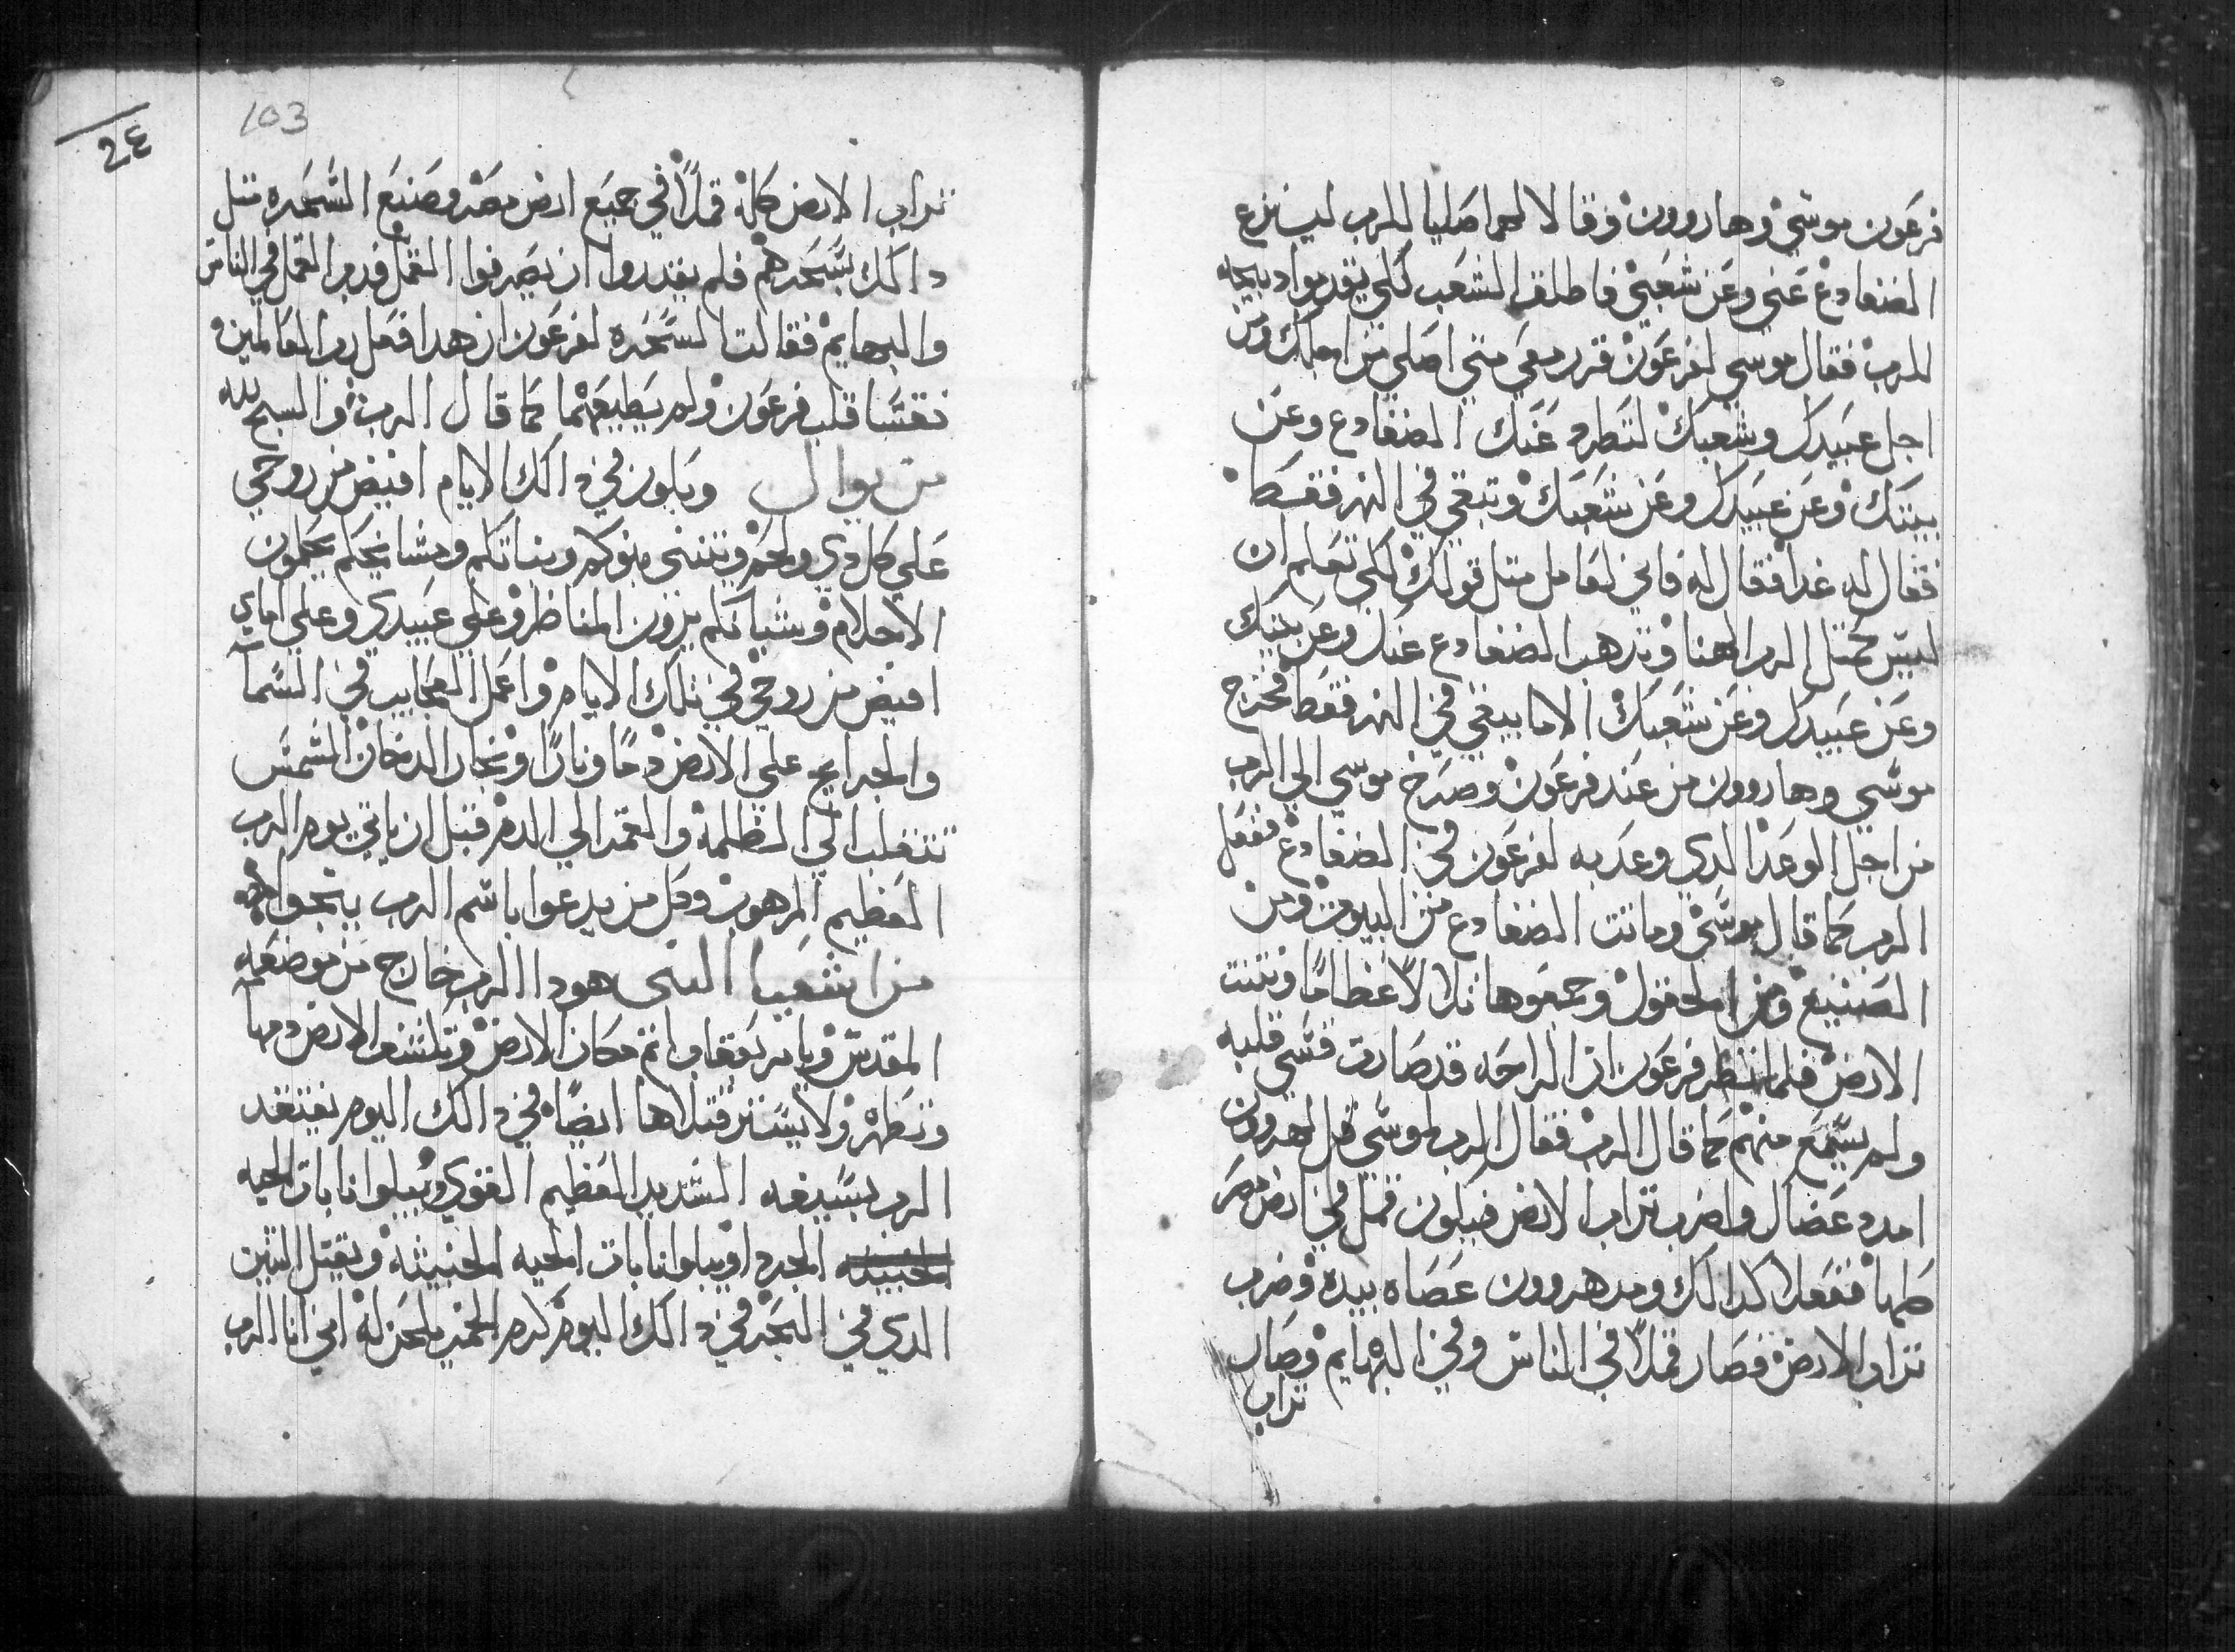 فرعون موسي وهارون وقالا لهما صليا للرب لينزع
الضفادع عني وعن شعبي فاطلق الشعب لكي يقدموا دبايحه
للرب فقال موسي لفرعون قرر معي متي اصلي من اجلك ومن
اجل عبيدك وشعبك لتطرد عنك الضفادع وعن
بيتك وعن عبيدك وعن شعبك وتبقي في النهر فقط
فقال له غدا فقال له فاني لفاعل متل قولك لكي تعلم ان
ليس كمتل الرب الهنا وتدهب الضفادع عنك وعن بيتك
وعن عبيدك وعن شعبك الا ما يبقي في النهر فقط فخرج
موسي وهارون من عند فرعون وصرخ موسي الي الرب
من اجل الوعد الدي وعد به لفرعون في الضفادع ففعل
الرب كما قال موسي وماتت الضفادع من البيوت ومن
الضييع ومن الحقول وجمعوها تلالا عظاما ونتنت
الارض فلما نظر فرعون ان الراحه قد صارت قسي قلبه
ولم يسمع منهم كما قال الرب فقال الرب لموسي قل لهرون
امدد عصاك واضرب تراب الارض فيكون قمل في ارض مصر
كلها ففعلا كدالك ومد هرون عصاه بيده وضرب
تراب الارض فصار قملا في الناس وفي البهايم وصار
تراب
103
24
تراب الارض كله قملا في جميع ارض مصر وصنع السحره متل
دالك بسحرهم فلم يقدروا ان يصرفوا القمل ودب القمل في الناس
والبهايم فقالت السحره لفرعون ان هدا فعل رب العالمين
فقسا قلب فرعون ولم يطيعهما كما قال الرب والسبح لله
من يوال ويكون في دالك الايام افيض من روحي
علي كل دي ولحم ويتنبي بنوكم وبناتكم ومشايخكم يحلمون
الاحلام وشبانكم يرون المناظر وعلي عبيدي وعلي اماي
افيض من روحي في تلك الايام واعمل العجايب في السما
والجرايح علي الارض دما ونارا وبخار الدخان الشمس
تنقلب الي الظلمه والقمر الي الدم قبل ان ياتي يوم الرب
العظيم المرهوب وكل من يدعوا باسم الرب ينجوا
من اشعيا النبي هودا الرب خارج من موضعه
المقدس وياتي بعقاب اتم مكان الارض وتكشف الارض دمها
وتظهر ولا يستر قتلاها ايضا في دالك اليوم يفتقد
الرب بسيفه الشديد العظيم القوي ويبلوا نابات الحيه
الخبيثه المجرد ويبلوا نابات الحيه الخبيثه ويقتل التنين
الدي في البحر في دالك اليوم كرم الخمر يلحن له اني انا الرب